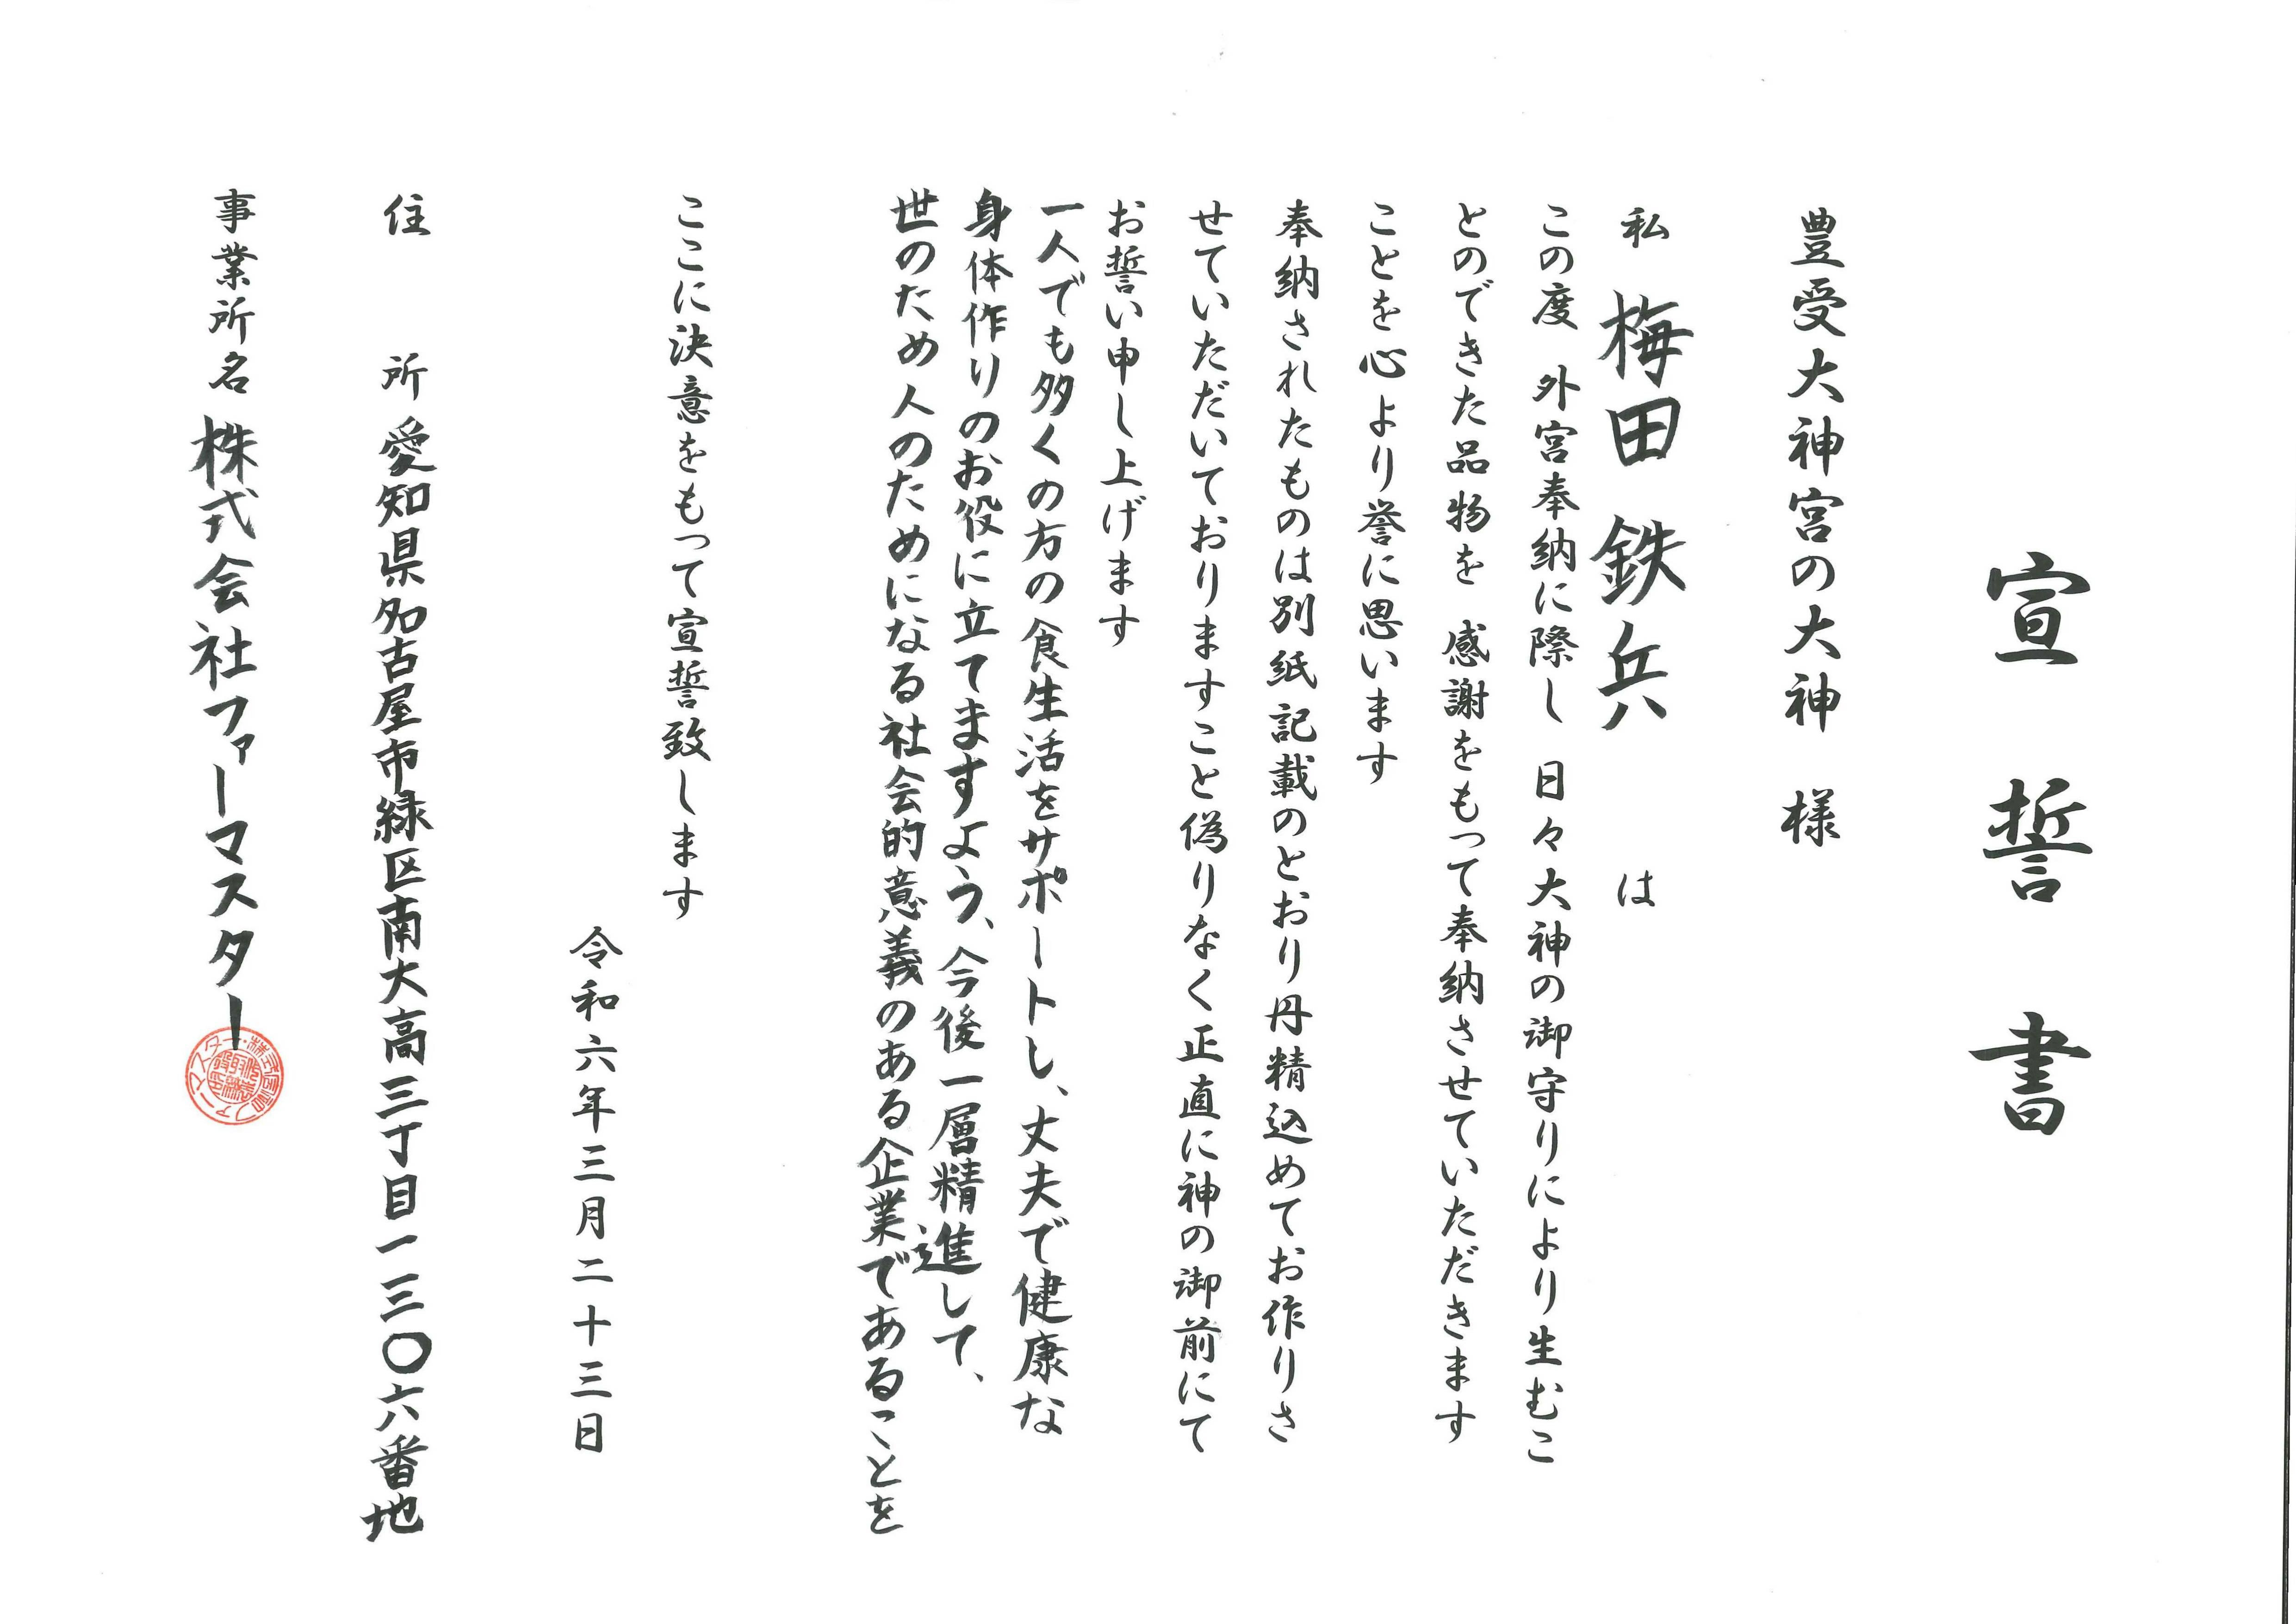 宣誓書
豊受大神宮の大神 様
私 梅田 鉄兵 は
この度 外宮奉納に際し 日々大神の御守りにより生むこ
とのできた品物を 感謝をもって奉納させていただきます
ことを心より誉に思います
奉納されたものは別紙記載のとおり丹精込めてお作りさ
せていただいておりますこと偽りなく正直に神の御前にて
お誓い申し上げます
一人でも多くの方の食生活をサポートし、丈夫で健康な
身体作りのお役に立てますよう、今後一層精進して、
世のため人のためになる社会的意義のある企業であることを
ここに決意をもって宣誓致します
令和六年三月二十三日
住 所 愛知県名古屋市緑区南大高三丁目一三〇六番地
事業所名 株式会社ファーマスター